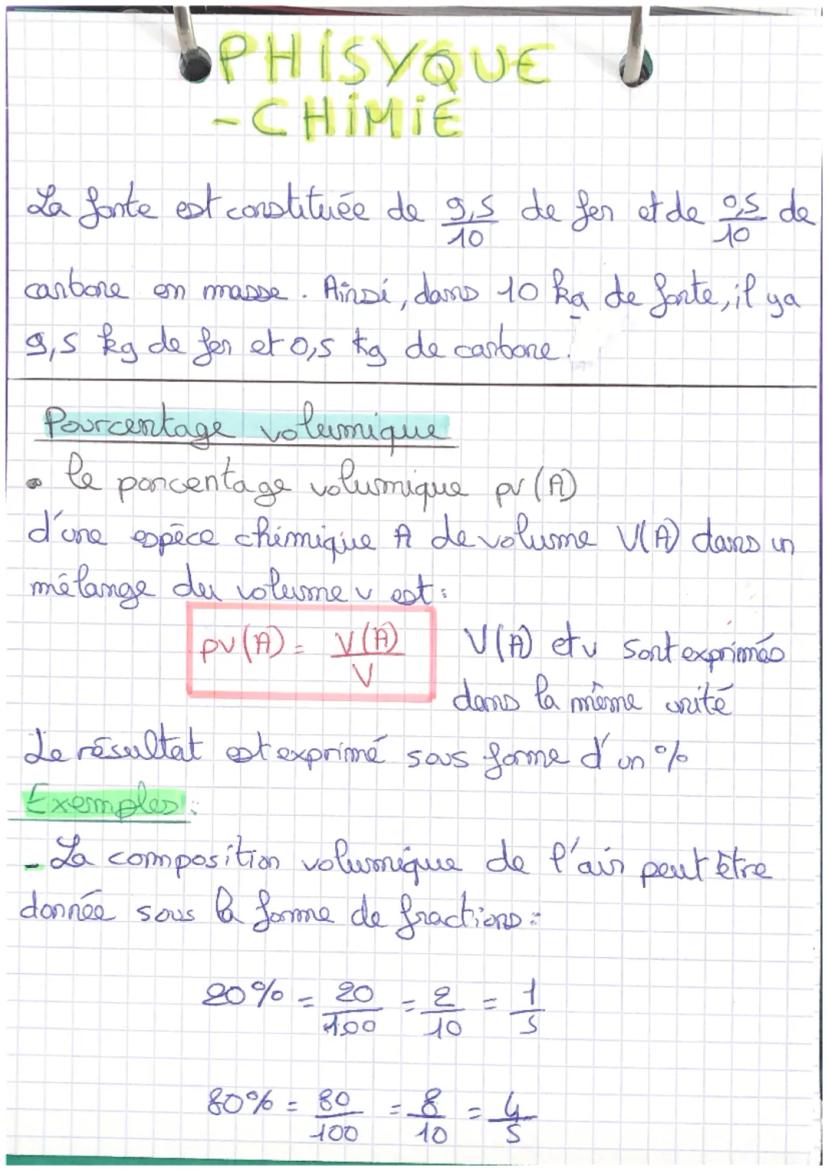 PHISYQUE
-CHIMIE
La fonte est constituée de 9,5/10 de fer et de 0,5/10 de
carbone en masse. Ainsi, dans 10 kg de fonte, il ya
9,5 kg de fer et 0,5 kg de carbone.
Pourcentage volumique
• le porcentage volumique pv (A)
d'une espèce chimique A de volume V(A) dans un
mélange du volume v est :
pv(A) = V(A)/V V(A) et v sont exprimés
dans la même unité
Le résultat est exprimé sous forme d'un %
Exemples :
- La composition volumique de l'air peut être
donnée sous la forme de fractions :
20% = 20/100 = 2/10 = 1/5
80% = 80/100 = 8/10 = 4/5